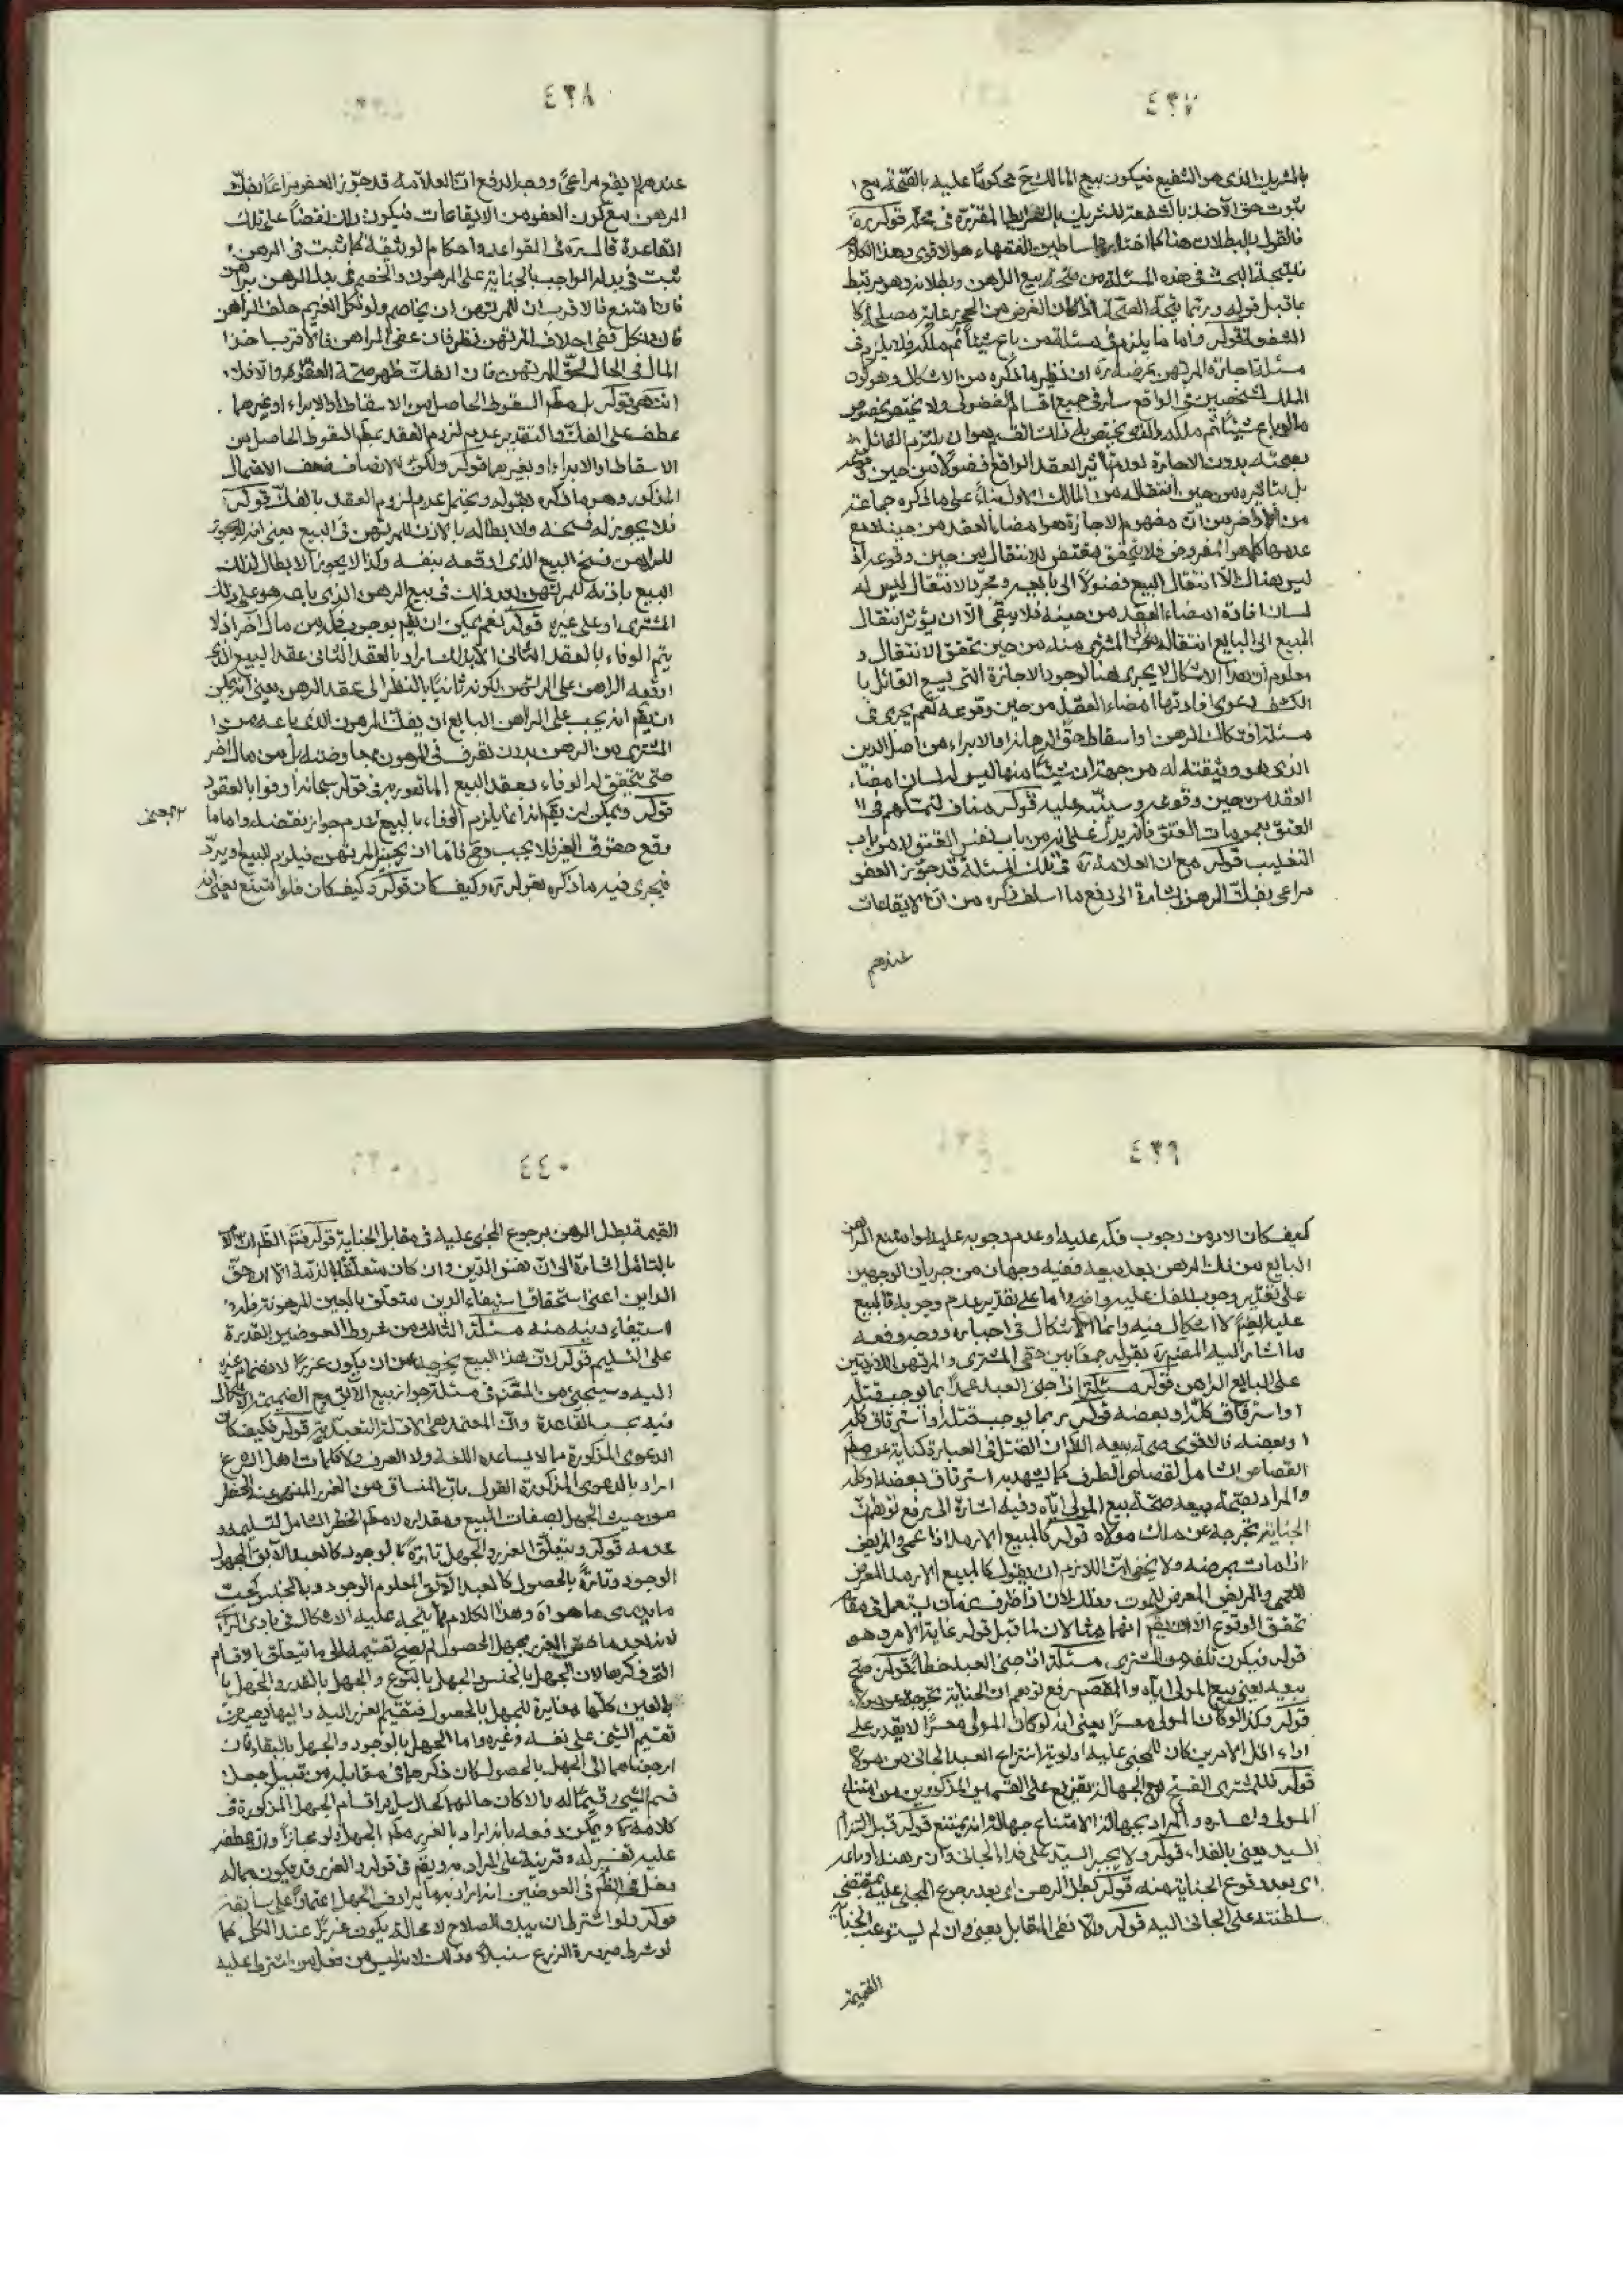 ٤٣٧
بالشريك الذى هو الشفيع فيكون بيع المالك ح محكوما عليه بالصحة مع
ثبوت حق الأخذ بالشفعة للشريك بالشرايط المقررة فى محله قوله ره
فالقول بالبطلان هنا كما اختاره اساطين الفقهاء هو الاقوى وهذا الكلام
نتيجة البحث فى هذه المسئلة من صحة بيع الراهن وبطلانه وهو مرتبط
بما قبل قوله وربما يتجه الصحة اذا كان الغرض من الحجر رعاية مصلحة كا
الشفعة قوله واما ما يلزم فى مسئلة من باع شيئا ثم ملكه فلا يلزم فى
مسئلة اجازة المرتهن غرضه ره ان نظير ما ذكره من الاشكال وهو كون
الملك لشخصين فى الواقع سار فى جميع اقسام الفضولى ولا يختص بخصوص
ما لو باع شيئا ثم ملكه والذى يختص به ذلك القسم هو ان يلتزم القائل
بصحته بدون الاجازة لعدم تاثير العقد الواقع فضولا من حين وقوعه
بل بتاثيره من حين انتقاله من المالك الاول بناء على ما ذكره جماعة
من الاواخر من ان مفهوم الاجازة هو امضاء العقد من حينه فمع
عدمها كما هو المفروض فلا يتحقق مقتض للانتقال من حين وقوعه اذ
ليس هناك الا انتقال المبيع فضولا الى بايعه ومجرد الانتقال ليس له
لسان افادة امضاء العقد من حينه فلا يبقى الا ان يؤثر انتقال
المبيع الى البايع انتقاله الى المشترى منه من حين تحقق الانتقال و
معلوم ان هذا الاشكال لا يجرى هنا لوجود الاجازة التى يسع القائل با
الكشف دعوى افادتها امضاء العقد من حين وقوعه نعم يجرى فى
مسئلة افتكاك الرهن او اسقاط حق الرهانة او الابراء من اصل الدين
الذى هو وثيقة له من جهة ان شيئا منها ليس له لسان امضاء
العقد من حين وقوعه وسينبه عليه قوله مناف لتمسكهم فى
العتق بعمومات العتق فانه يدل على انه من باب نفس العتق لا من باب
التغليب قوله مع ان العلامة ره فى تلك المسئلة قد جوز العفو
مراعى بفك الرهن اشارة الى دفع ما اسلف ذكره من ان الايقاعات
عندهم
٤٣٨
عندهم لا يقع مراعى ووجه الدفع ان العلامة قد جوز العفو مراعا بفك
الرهن مع كون العفو من الايقاعات فيكون ذلك نقضا على تلك
القاعدة
ثبت فى بدله الواجب بالجناية على المرهون والخصم فى بدل الرهن الراهن
فان امتنع فالاقرب ان للمرتهن ان يخاصم ولو نكل الغريم حلف الراهن
فان نكل ففى احلاف المرتهن نظر فان عفى الراهن فالاقرب اخذ
المال فى الحال لحق المرتهن فان انفك ظهر صحة العفو والا فلا
انتهى قوله بل مطلق السقوط الحاصل من الاسقاط او الابراء او غيرهما
عطف على الفك والتقدير عدم لزوم العقد بمطلق السقوط الحاصل من
الاسقاط او الابراء او بغيرهما قوله ولكن الانصاف ضعف الاحتمال
المذكور وهو ما ذكره بقوله ويحتمل عدم لزوم العقد بالفك قوله
فلا يجوز له فسخه ولا ابطاله بالاذن للمرتهن فى البيع يعنى انه لا يجوز
للراهن فسخ البيع الذى اوقعه بنفسه وكذا لا يجوز الابطال لذلك
البيع باذنه للمرتهن بعد ذلك فى بيع الرهن الذى باعه هو على ذلك
المشترى او على غيره قوله نعم يمكن ان يقم بوجوب فكه من مال اخر اذ لا
يتم الوفاء بالعقد الثانى الا بذلك اراد بالعقد الثانى عقد البيع الذى
اوقعه الراهن على الرهن لكونه ثانيا بالنظر الى عقد الرهن يعنى انه يمكن
ان يقم انه يجب على الراهن البايع ان يفك المرهون الذى باعه من
المشترى من الرهن بدون تصرف فى المرهون بمعاوضته بل من مال اخر
حتى يتحقق له الوفاء بعقد البيع المأمور به فى قوله سبحانه اوفوا بالعقود
قوله ويمكن ان يقم انه انما يلزم الوفاء بالبيع بمعنى عدم جواز نقضه واما ما
دفع حقوق الغير فلا يجب وح فاما ان يجيز المرتهن فيلزم البيع او يرد
فيجرى فيه ما ذكره بقوله ره وكيف كان قوله وكيف كان فلو امتنع يعنى انه
٤٣٩
كيف كان الامر من وجوب فكه عليه او عدم وجوبه عليه لو امتنع الراهن
البايع من فك الرهن بعد بيعه ففيه وجهان من جريان الوجهين
على تقدير وجوب الفك عليه واضح واما على تقدير عدم وجوبه فالمبيع
عليه ايضم لا اشكال فيه وانما الاشكال فى اجباره ووجه دفعه
ما اشار اليه المصم ره بقوله جمعا بين حقى المشترى والمرتهن اللازمين
على البايع الراهن قوله مسئلة اذا جنى العبد عمدا بما يوجب قتله
او استرقاق كله او بعضه قوله ره بما يوجب قتله او استرقاق كله
او بعضه فالاقوى صحة بيعه الظم ان القتل فى العبارة كناية عن مطلق
القصاص الشامل لقصاص الطرف كما يشهد به استرقاق بعضه او كله
والمراد بصحة بيعه صحة بيع المولى اياه وفيه اشارة الى رفع توهم ان
الجناية تخرجه عن ملك مولاه قوله كالمبيع الارمد اذا عمى والمريض
اذا مات بمرضه ولا يخفى ان اللازم ان يقول كالمبيع الارمد المعرض
للعمى والمريض المعرض للموت وذلك لان اذا ظرف زمان يستعمل فى مقام
تحقق الوقوع الا ان يقم انهما مثالان لما قبل قوله غاية الامر وهو
قوله فيكون تلفه من المشترى مسئلة اذا جنى العبد خطأ قوله صح
بيعه يعنى بيع المولى اياه والمقصم رفع توهم ان الجناية تخرجه عن ملكه
قوله وكذا لو كان المولى معسرا يعنى انه لو كان المولى معسرا لا يقدر على
اداء اقل الامرين كان للمجنى عليه اولويته انتزاع العبد الجانى من مولاه
قوله فللمشترى الفسخ مع الجهالة تفريع على القسمين المذكورين من امتناع
المولى واعساره والمراد بجهالة الامتناع جهالة انه يمتنع قوله قبل التزام
السيد يعنى بالفداء قوله ولا يجبر السيد على فداء الجانى وان رهنه او باعه
اى بعد وقوع الجناية منه قوله بطل الرهن اى بعد رجوع المجنى عليه بمقتضى
سلطنته على الجانى اليه قوله والا ففى المقابل يعنى وان لم يستوعب الجناية
القيمة
٤٤٠
القيمة بطل الرهن برجوع المجنى عليه فى مقابل الجناية
بالتامل اشارة الى ان نفس الدين وان كان متعلقا بالذمة الا ان حق
الداين اعنى استحقاق استيفاء الدين متعلق بالعين المرهونة فله
استيفاء دينه منه مسئلة الثالث من شروط العوضين القدرة
على التسليم قوله لان هذا البيع يخرجه عن ان يكون غررا لانضمام غيره
اليه وسيجئ من المصم فى مسئلة جواز بيع الابق مع الضميمة الاشكال
فيه بحسب القاعدة وان المعتمد هو الادلة التعبدية قوله فكيف كان
الدعوى المذكورة مما لا يساعده اللغة ولا العرف ولا كلمات اهل الشرع
اراد بالدعوى المذكورة القول بان المنساق من الغرر المنهى عنه الخطر
من حيث الجهل بصفات المبيع ومقداره لا مطلق الخطر الشامل لتسليمه و
عدمه قوله ويتعلق الغرر والجهل تارة بالوجود كالعبد الابق المجهول
الوجود وتارة بالحصول كالعبد الابق المعلوم الوجود وبالجنس كحب
ما يدرى ما هو اه وهذا الكلام مما يتجه عليه الاشكال فى بادى الرأى
لانه بعد ما فسر الغرر بمجهول الحصول لم يصح تقسيمه الى ما تتعلق بالاقسام
التى ذكرها لان الجهل بالجنس والجهل بالنوع والجهل بالقدر والجهل با
بالعين كلها مغايرة للجهل بالحصول فتقسيم الغرر اليه واليها يصير من
تقسيم الشئ على نفسه وغيره واما الجهل بالوجود والجهل بالبقاء فان
ارجعناهما الى الجهل بالحصول كان ذكرها فى مقابله من قبيل جعل
قسم الشئ قسيما له والا كان حالهما كحال ساير اقسام الجهل المذكورة فى
كلامه كا ويمكن دفعه بانه اراد بالغرر مطلق الجهل ولو مجازا وان عطفه
عليه تفسير له وقرينة على المراد به ويقم فى قوله والغرر قد يكون بما له
دخل فى العوضين انه اراد به ما يرادف الجهل اعتمادا على سابقه
قوله ولو اشترط ان يبدو الصلاح لا محالة يكون غررا عند الكل كما
لو شرط صيرورة الزرع سنبلا وذلك لانه ليس من فعل من اشترط عليه